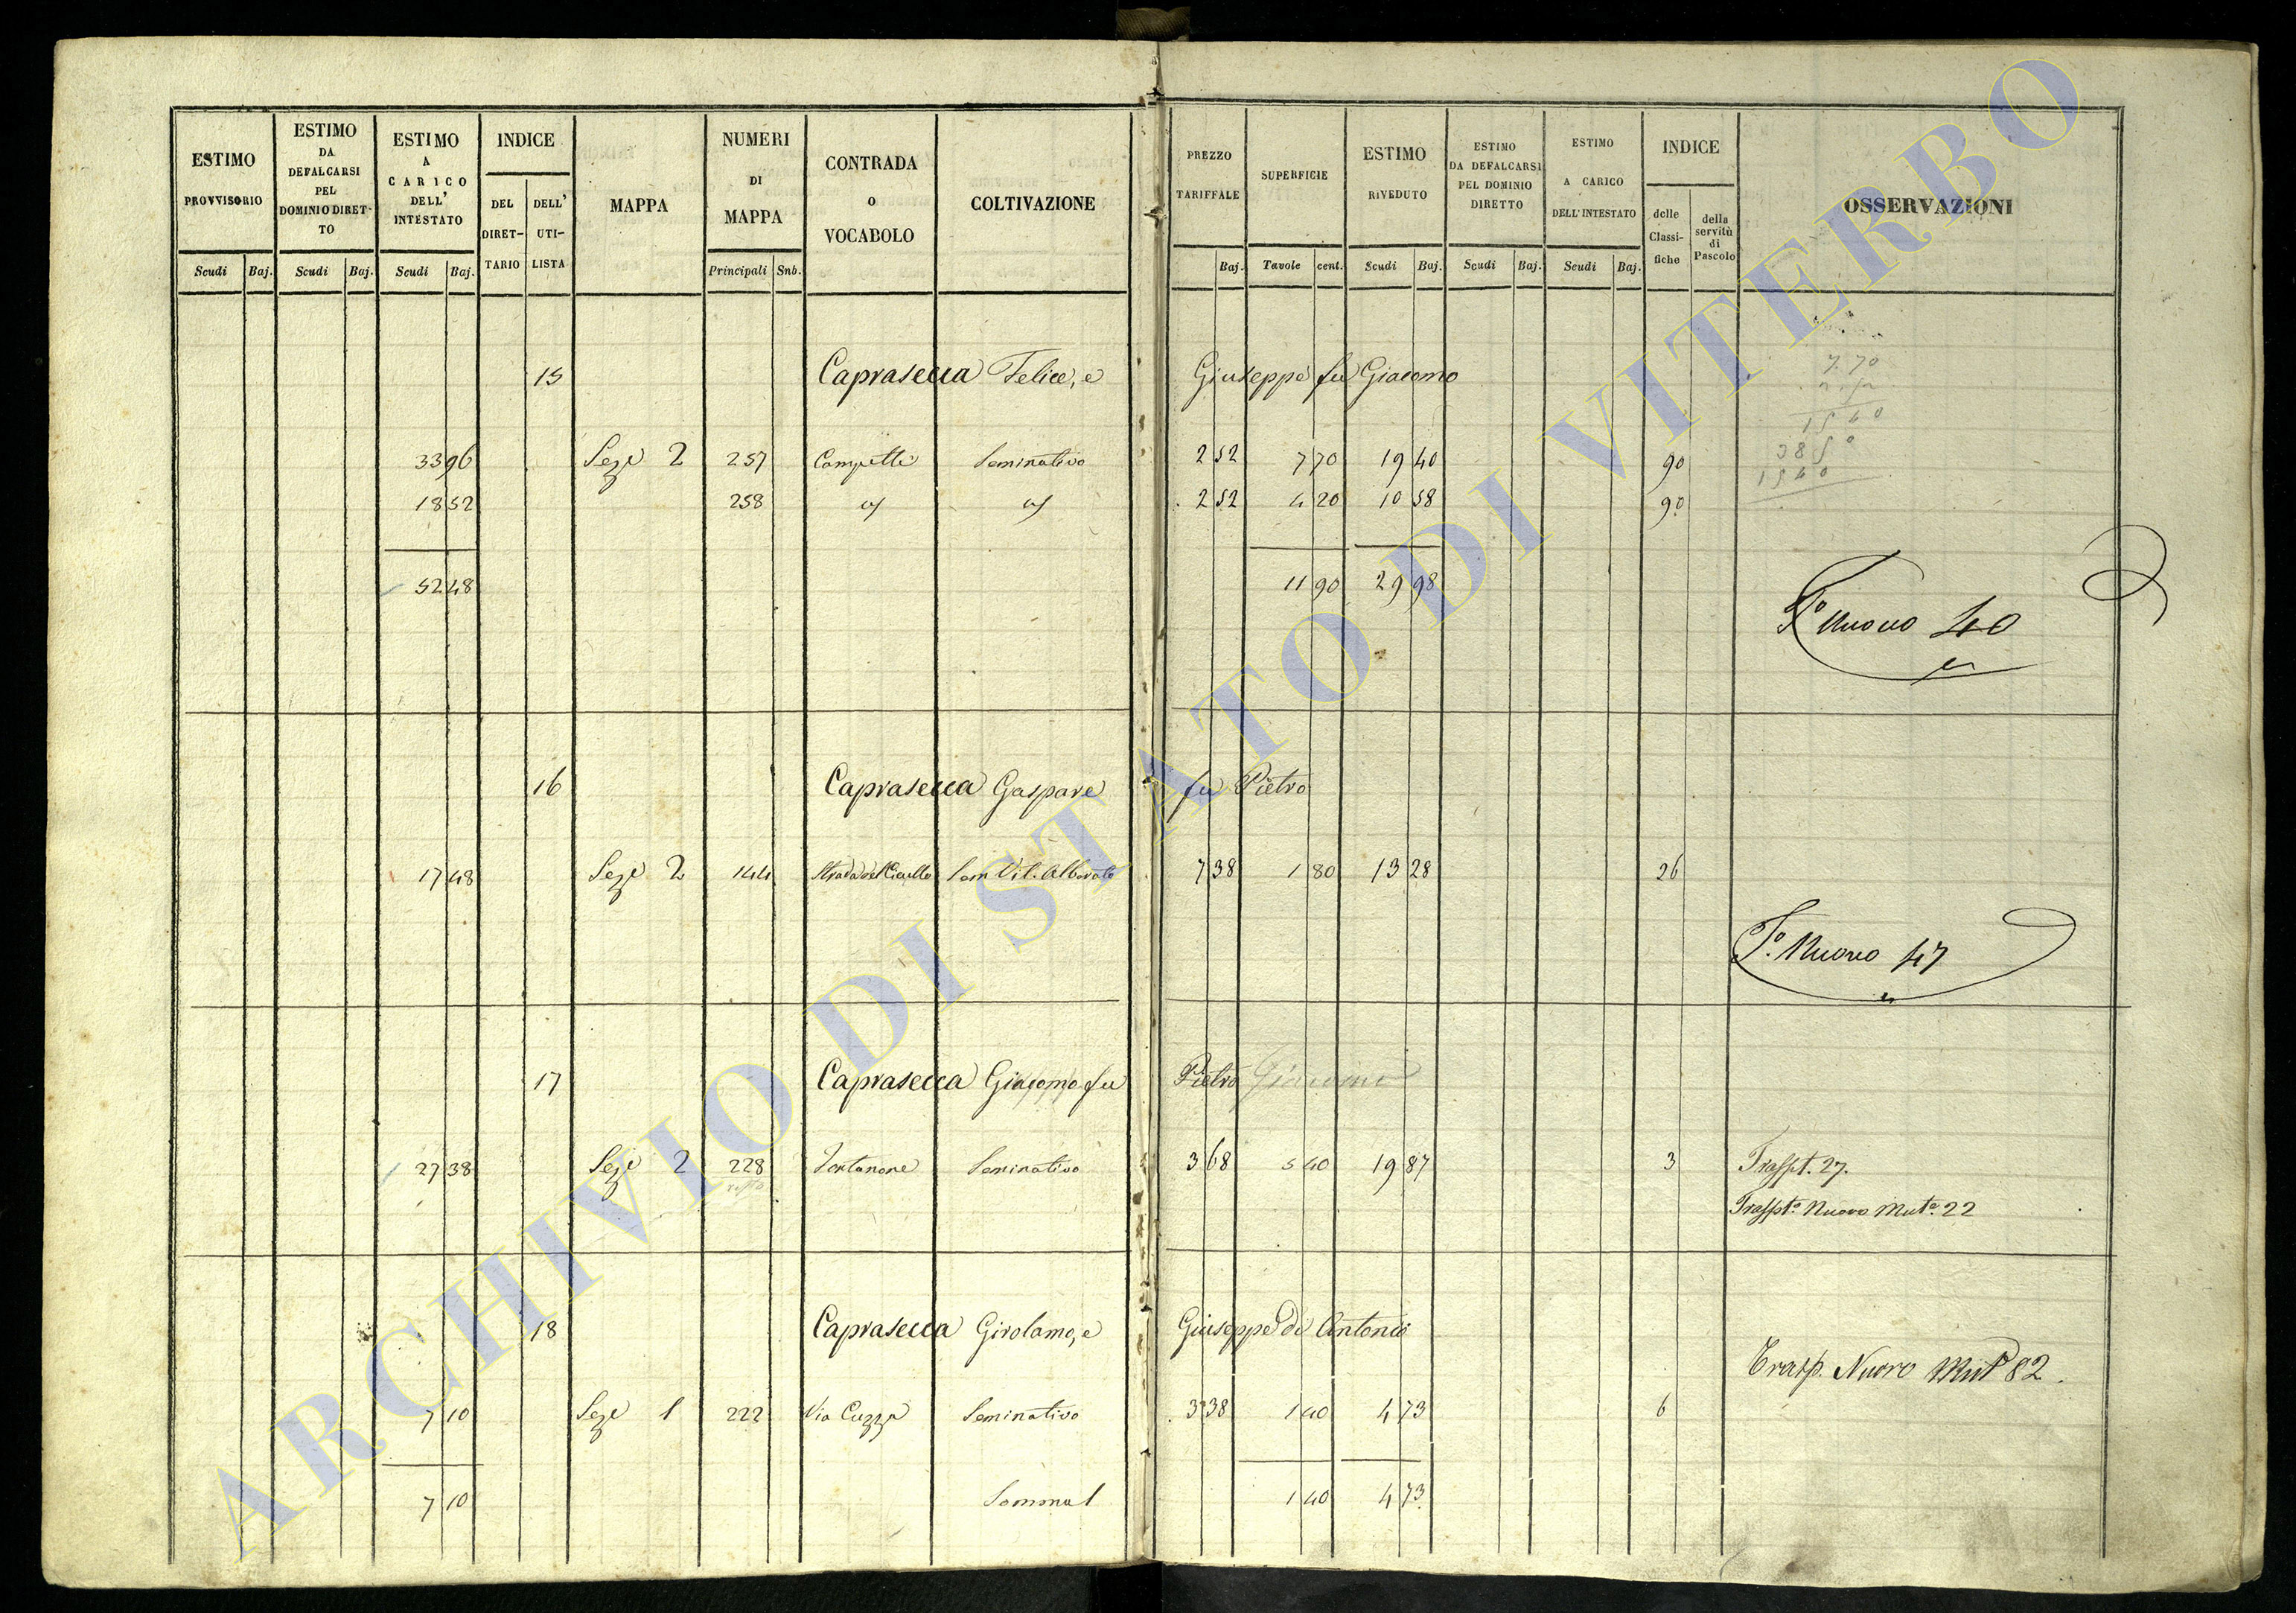 ESTIMO PROVVISORIO
ESTIMO DA DEFALCARSI PEL DOMINIO DIRET-TO
ESTIMO A CARICO DELL' INTESTATO
INDICE
DEL DIRET-TARIO
DELL' UTI-LISTA
MAPPA
NUMERI DI MAPPA
CONTRADA O VOCABOLO
COLTIVAZIONE
PREZZO TARIFFALE
SUPERFICIE
ESTIMO RIVEDUTO
ESTIMO DA DEFALCARSI PEL DOMINIO DIRETTO
ESTIMO A CARICO DELL'INTESTATO
INDICE
delle Classi-fiche
della servitù di Pascolo
OSSERVAZIONI
Scudi Baj. Scudi Baj. Scudi Baj. Principali Snb. Baj. Tavole cent. Scudi Baj. Scudi Baj. Scudi Baj.
15 Caprasecca Felice, e Giuseppe fu Giacomo
7.70
1540
385
1540
33 96 Seze 2 257 Campetti Seminativo 2 52 7 70 19 40 90
18 52 258 2 52 4 20 10 58 90
52 48 11 90 29 98
F.º Nuovo 40
16 Caprasecca Gaspare fu Pietro
17 48 Seze 2 144 Sem Vit. Alborato 7 38 1 80 13 28 26
F.º Nuovo 47
17 Caprasecca Giacomo fu Pietro Giacomo
27 38 Seze 2 228 Fontanone Seminativo 3 68 5 40 19 87 3 Traspt. 27.
Traspt.º Nuovo Mut.ª 22
18 Caprasecca Girolamo, e Giuseppe di Antonio
Trasp. Nuovo Mut.ª 82.
7 10 Seze 1 222 Via Cuzza Seminativo 3 38 1 40 4 73 6
7 10 1 40 4 73
ARCHIVIO DI STATO DI VITERBO